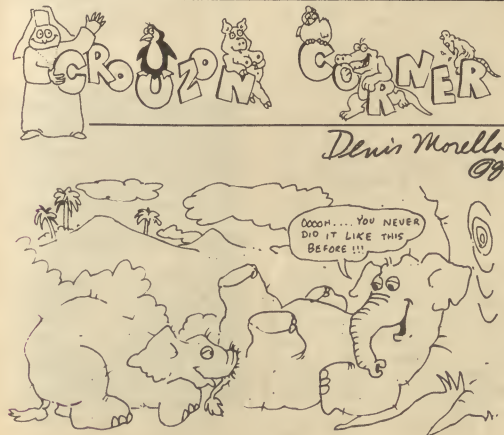 CROUZON CORNER
Denis Morello
98
OOOOH....YOU NEVER
DID IT LIKE THIS
BEFORE!!!